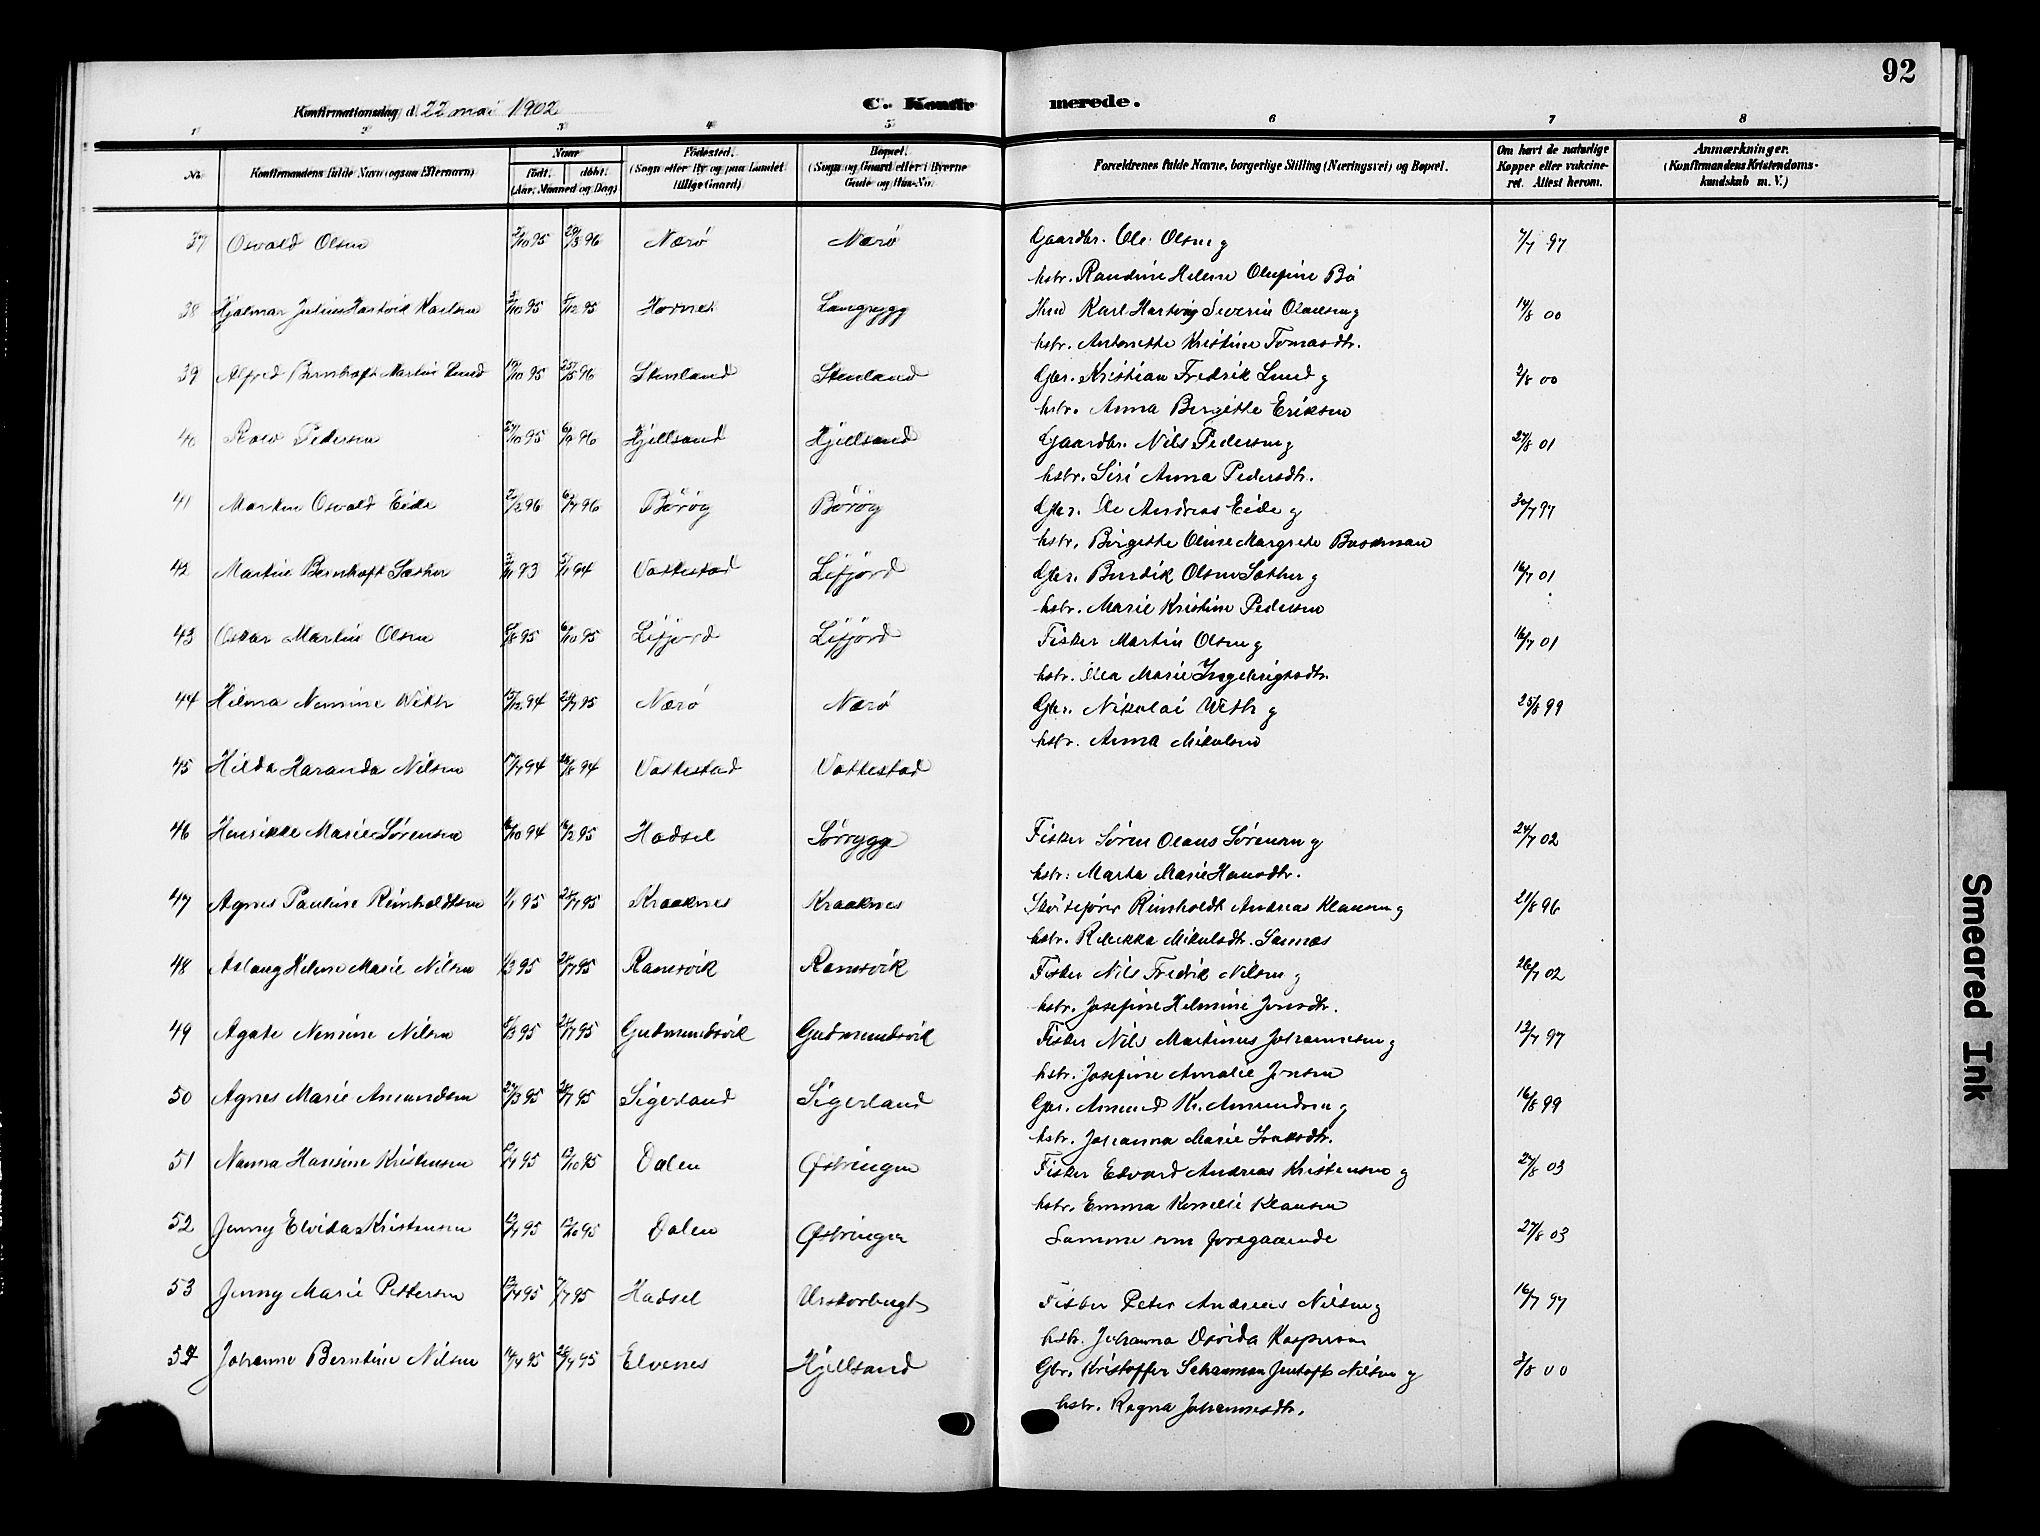 92
Konfirmationsdag d. 22 mai 1902
C. Konfirmerede.
1 2 3 4 5 6 7 8
No.
Konfirmandens fulde Navn (ogsaa Efternavn)
Naar
født. døbt.
(Aar, Maaned og Dag)
Fødested.
(Sogn eller By og paa Landet
tillige Gaard)
Bopæl.
(Sogn og Gaard eller i Byerne
Gade og Hus-No.
Forældrenes fulde Navne, borgerlige Stilling (Næringsvei) og Bopæl.
Om havt de naturlige
Kopper eller vakcine-
ret. Attest herom.
Anmærkninger.
(Konfirmandens Kristendoms-
kundskab m. V.)
37 Osvald Olsen 2/10 95 29/3 96 Nærö Nærö Gaardbr. Ole Olsen g 7/7 97
hstr. Randine Helene Olufine Bö
38 Hjalmar Julius Hartvik Karlsen 3/10 95 8/12 95 Hovnes Langrygg Karl Hartvig Severin Olausen g 14/8 00
hstr. Antonette Kristine Tomasdtr.
39 Alfred Bernhoft Martin Lund 19/10 95 25/5 96 Stenland Stenland Gbr. Kristian Fredrik Lund g 2/8 00
hstr. Anna Bergitte Eriksen
40 Pedersen 27/10 95 6/9 96 Hjellsand Hjellsand Gaardbr. Nils Pedersen g 27/8 01
hstr. Siri Anna Pedersdtr.
41 Martin Osvald Eide 2/2 96 6/7 96 Börög Börög Gbr. Ole Andreas Eide g 30/7 97
hstr. Birgitte Oline Margrete
42 Martin Bernhoft Sæther 3/11 93 5/1 94 Vottestad Lifjord Gbr. Olsen Sæther g 16/7 01
hstr. Marie Kristine Pedersen
43 Oskar Martin Olsen 8/8 95 6/10 95 Lifjord Lifjörd Fisker Martin Olsen g 16/7 01
hstr. Marie Ingebrigtsdtr.
44 Hilma Nennine With 15/12 94 21/7 95 Nærö Nærö Gbr. Nikolai With g 25/8 99
hstr. Anna Mikalsen
45 Hilda Haranda Nilsen 17/7 94 26/8 94 Vottestad Vottestad
46 Henrikke Marie Sørensen 16/10 94 16/2 95 Hadsel Sörrygge Fisker Sören Olaus Sørensen g 24/7 02
hstr: Marta Marie Hansdtr.
47 Agnes Pauline Reinholdtsen 1/1 95 21/7 95 Kraaknes Kraaknes Reinholdt Andreas Klausen g 21/8 96
hstr. Rebekka Mikalsdtr. Sannes
48 Aslaug Helene Marie Nilsen 1/3 95 21/7 95 Ramsvik Ramsvik Fisker Nils Fredrik Nilsen g 26/7 02
hstr. Josefine Helmine Jonsdtr.
49 Agate Nennine Nilsen 8/3 95 21/7 95 Gudmundsvik Gudmundsvik Fisker Nils Martinus Johannesen g 12/7 97
hstr. Josefine Amalie Jonsen
50 Agnes Marie Amundsen 29/3 95 21/7 95 Sigerland Sigerland Gbr. Amund Kr. Amundsen g 16/8 99
hstr. Johanna Marie
51 Nanna Hansine Kristensen 12/4 95 13/10 95 Dalen Östringen Fisker Edvard Andreas Kristensen g 27/8 03
hstr. Emma Kornelie Klausen
52 Jenny Elvida Kristensen 12/4 95 13/10 95 Dalen Östringen Samme som foregaaende 27/8 03
53 Jenny Marie Pettersen 13/4 95 7/7 95 Hadsel Fisker Peter Andreas Nilsen g 16/7 97
hstr. Johanna Kaspersen
54 Johanne Berntine Nilsen 14/4 95 28/7 95 Elvenes Hjellsand Gbr. Kristoffer Jentoft Nilsen g 3/8 00
hstr. Regna Johannesdtr.
Smeared Ink